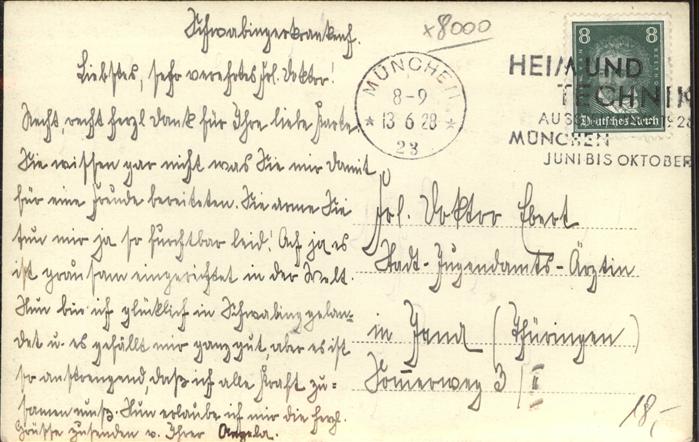 Schwabingerkrankenh.
Liebstes, sehr verehrtes Frl. Doktor!
Recht, recht herzl Dank für Ihre liebe Karte.
Sie wissen gar nicht was Sie mir damit
für eine Freude bereiteten. Sie arme Sie
tun mir ja so furchtbar leid! Ach ja es
ist grausam eingerichtet in der Welt.
Nun bin ich glücklich in Schwabing gelan-
det u. es gefällt mir ganz gut aber es ist
so anstrengend, daß ich alle Kraft zu-
samen muß. Nun erlaube ich mir die herzl.
Grüsse zusenden v. Ihrer Angela.
x8000
MÜNCHEN
8-9
* 13 6 28 *
23
HEIM UND
TECHNIK
1928
MÜNCHEN
JUNI BIS OKTOBER
8 8
Deutsches Reich
Frl. Doktor Ebert
Stadt-Jugendamts-Ärztin
in Jena (Thüringen)
3/II
18,-